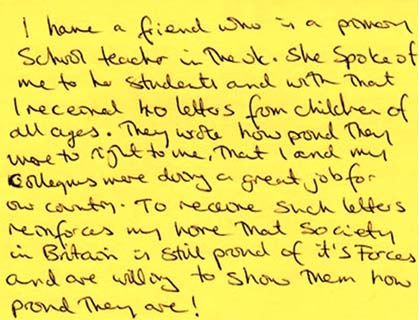 I have a friend who is a primary
School teacher in the UK. She Spoke of
me to he students and with that
I received 40 letters from children of
all ages. They wrote how proud They
were to right to me, That I and my
Collegues were doing a great job for
our country. To receive such letters
reinforces my hope That society
in Britain is still proud of it's Forces
and are willing to show them how
proud They are!